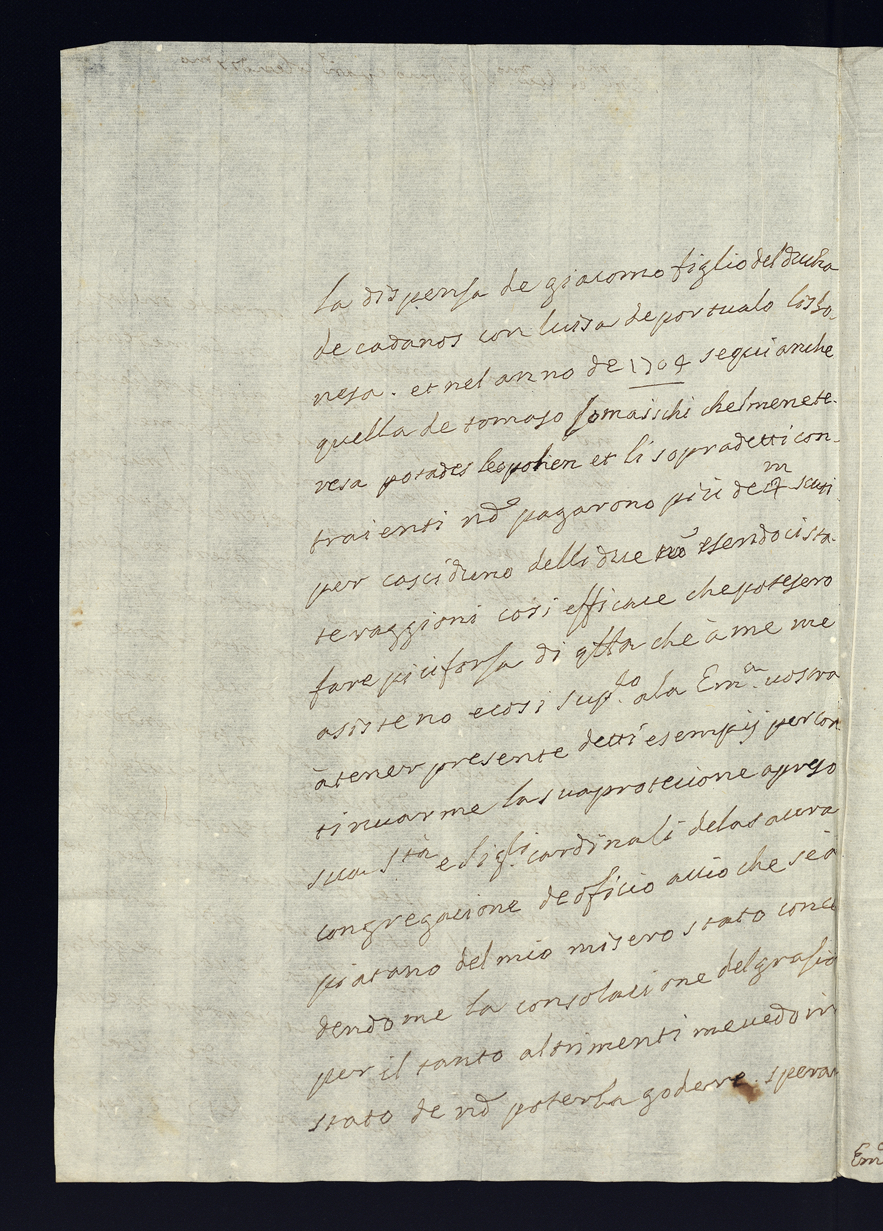 la dispensa de giacomo figlio del ducha
de cadanos con luisa de portualo lisbo
nesa. et nel anno de 1704 segui anche
quella de tomaso chelmenete.
resa potades et li sopradetti con-
traienti nō pagarono piu de 4 m scuti
per casciduno delli due nō esendoci sta-
te raggioni cosi efficace che potesero
fare piu forsa di qlla che à me me
asisteno e cosi sup.co ala Em.a vostra
à tener presente detti esempij per con
tinuarme la sua protecione apreso
sua S.tà e li cardinali dela sacra
congregacione de oficio acciò che se à
piatano del mio misero stato conce
dendome la consolacione del grasio
per il tanto altrimenti me vedo in
stato de nō poterla godere. speran
Em